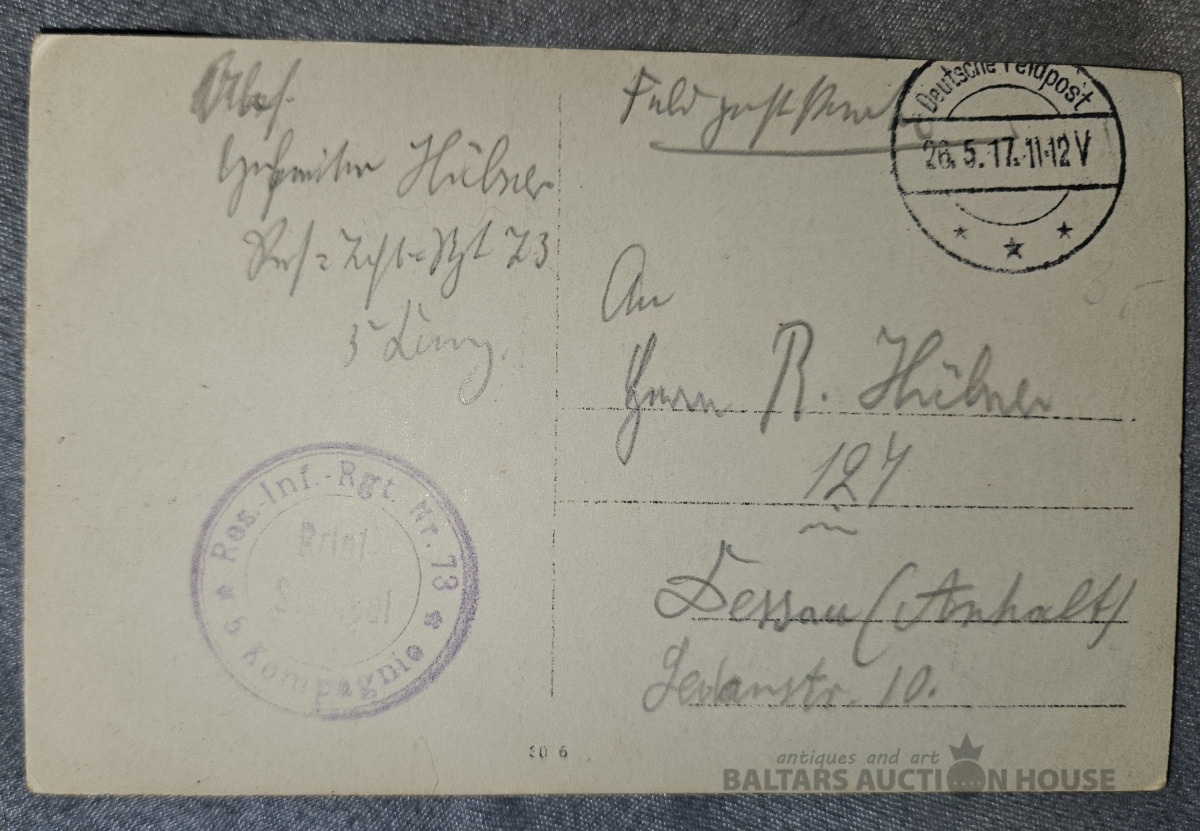 Abs.
Gefreiter Hübner
Res=Inft=Rgt 73
5 Komp.
Feldpostkarte
Deutsche Feldpost
26.5.17.11-12V
An
Herrn R. Hübner
127
in
Dessau (Anhalt)
Sedanstr. 10.
Res.-Inf.-Rgt. Nr. 73
5 Kompagnie
Brief
Stempel
30 6
antiques and art
BALTARS AUCTION HOUSE